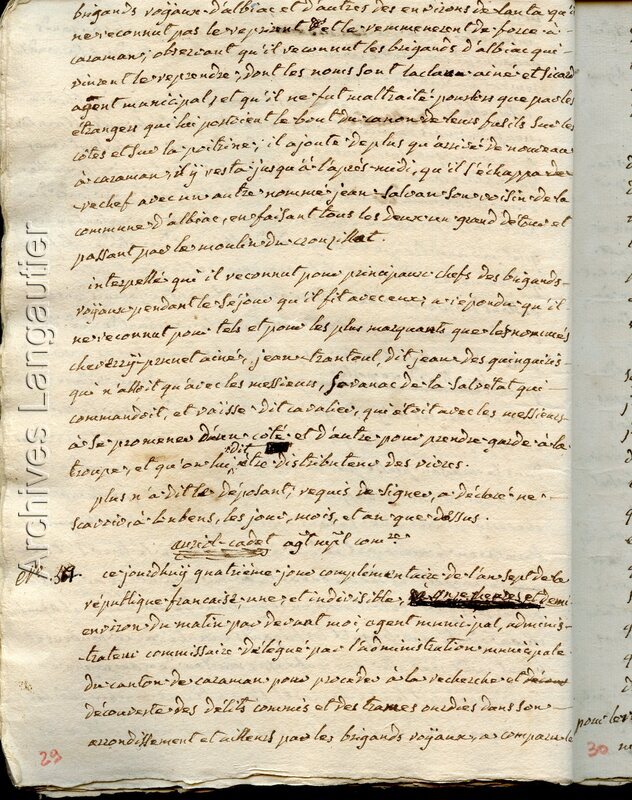 brigands royaux d'albiac et d'autres des environs de Lanta qu'il
ne reconnut pas le reprirent et la remmenerent de force à
caraman; observant qu'il reconnut les brigands d'albiac qui
vinrent le reprendre, dont les noms sont ainé et Sicard
agent municipal, et qu'il ne fut maltraité pour lors que par les
étrangers qui lui portoient le bout du canon de leurs fusils sur les
côtes et sur la poitrine; il ajoute de plus qu'arrivé de nouveau
à caraman, il y resta jusqu'à l'après-midi, qu'il s'échappa de
rechef avec un autre nommé jean Salvan son voisin de la
commune d'albiac, en faisant tous les deux un grand detour et
passant par le moulin du crouzillat.
interpellé qui il reconnut pour principaux chefs des brigands
royaux pendant le séjour qu'il fit avec eux, a répondu qu'il
ne reconnut pour tels et pour les plus marquants que les nommés
pruet ainé, jean trantoul, dit jean des
qui n'alloit qu'avec les messieurs, Savanac de la Salvetat qui
commandoit, et vaisse dit cavalier, qui étoit avec les messieurs
à se promener d'un côté et d'autre pour prendre garde à la
troupe, et qu'on lui dit être distributeur des vivres.
plus n'a dit le déposant; requis de signer, a déclaré ne
scavoir, à Loubens, les jour, mois, et an que dessus.
auriol-cadet agt mpl comre
ce jourdhuy quatrième jour complémentaire de l'an sept de la
république francaise, une et indivisible, demi
environ du matin par devant moi, agent municipal, adminis-
trateur commissaire délégué par l'administration municipale
du canton de caraman pour proceder à la recherche et
découverte des délits commis et des trames ourdies dans son
arrondissement et ailleurs par les brigands royaux, a comparu le
29
pour le
30
Archives Langautier